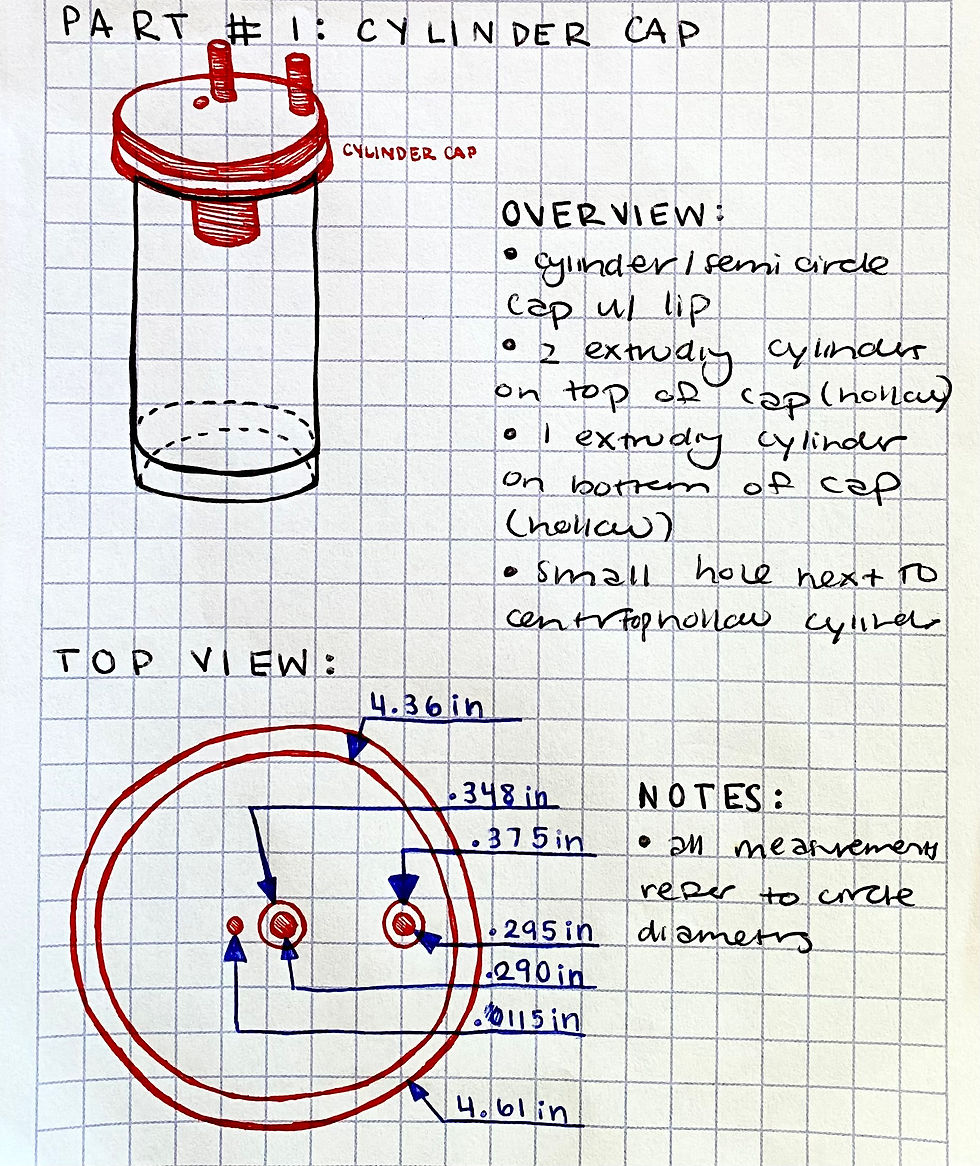 PART # 1: CYLINDER CAP
CYLINDER CAP
OVERVIEW:
• cylinder/semi circle
cap w/ lip
• 2 extrudig cylinders
on top of cap (hollow)
• 1 extrudig cylinder
on bottom of cap
(hollow)
• small hole next to
centr top hollow cylinder
TOP VIEW:
4.36 in
.348 in
.375 in
.295 in
.290 in
.0115 in
4.61 in
NOTES:
• all measurements
refer to circle
diameters